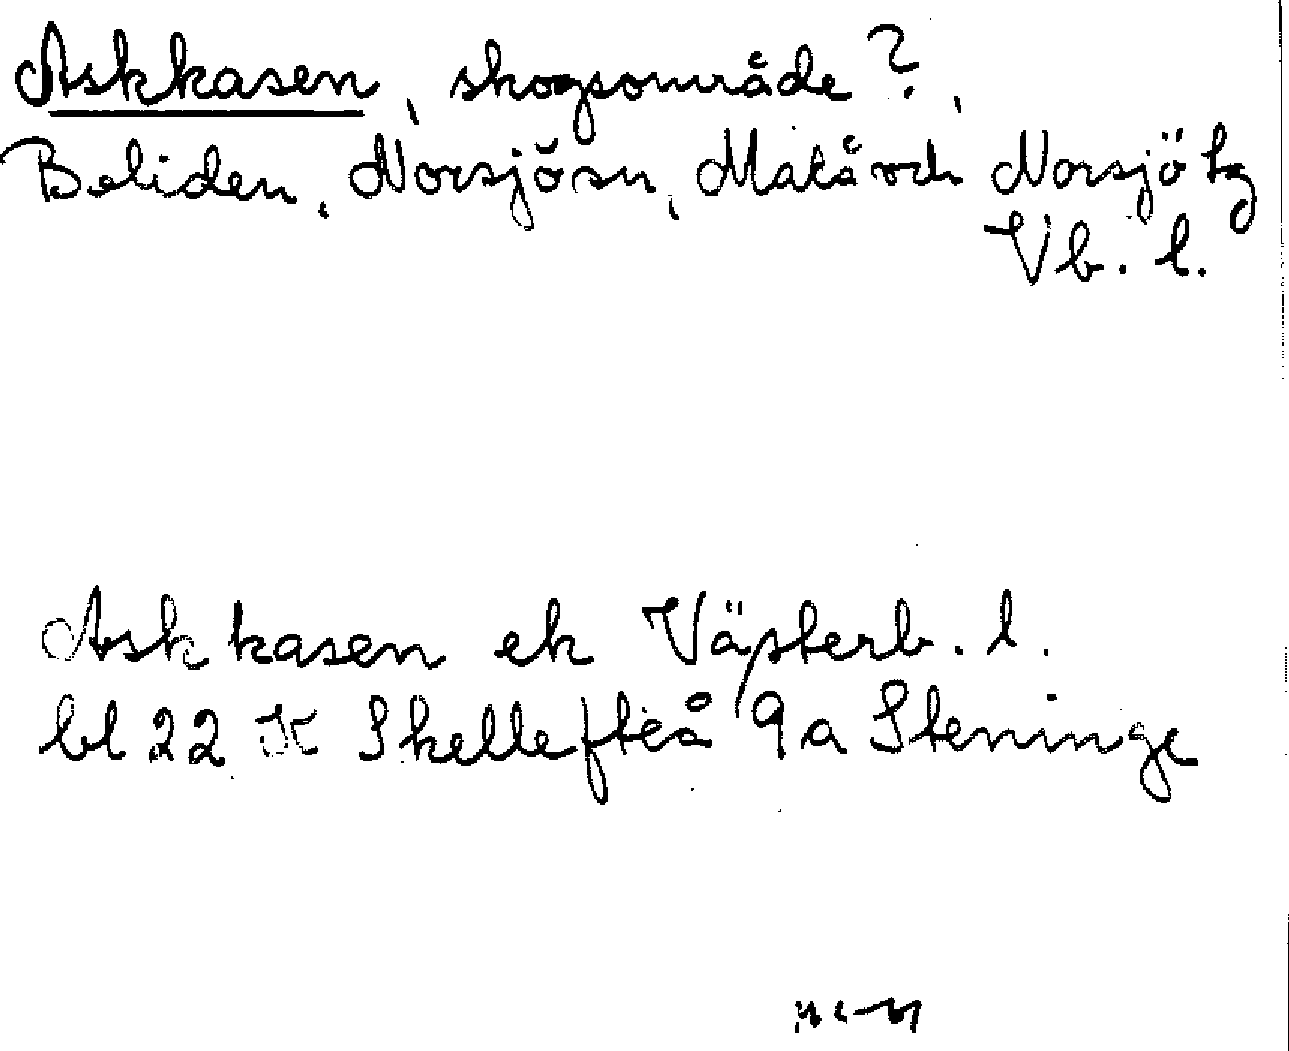 Askkasen, skogsområde?,
Beliden, Norsjö sn, Malå och Norsjö tg
Vb. l.
Askkasen ek Västerb. l.
bl 22 K Skellefteå 9a Steninge